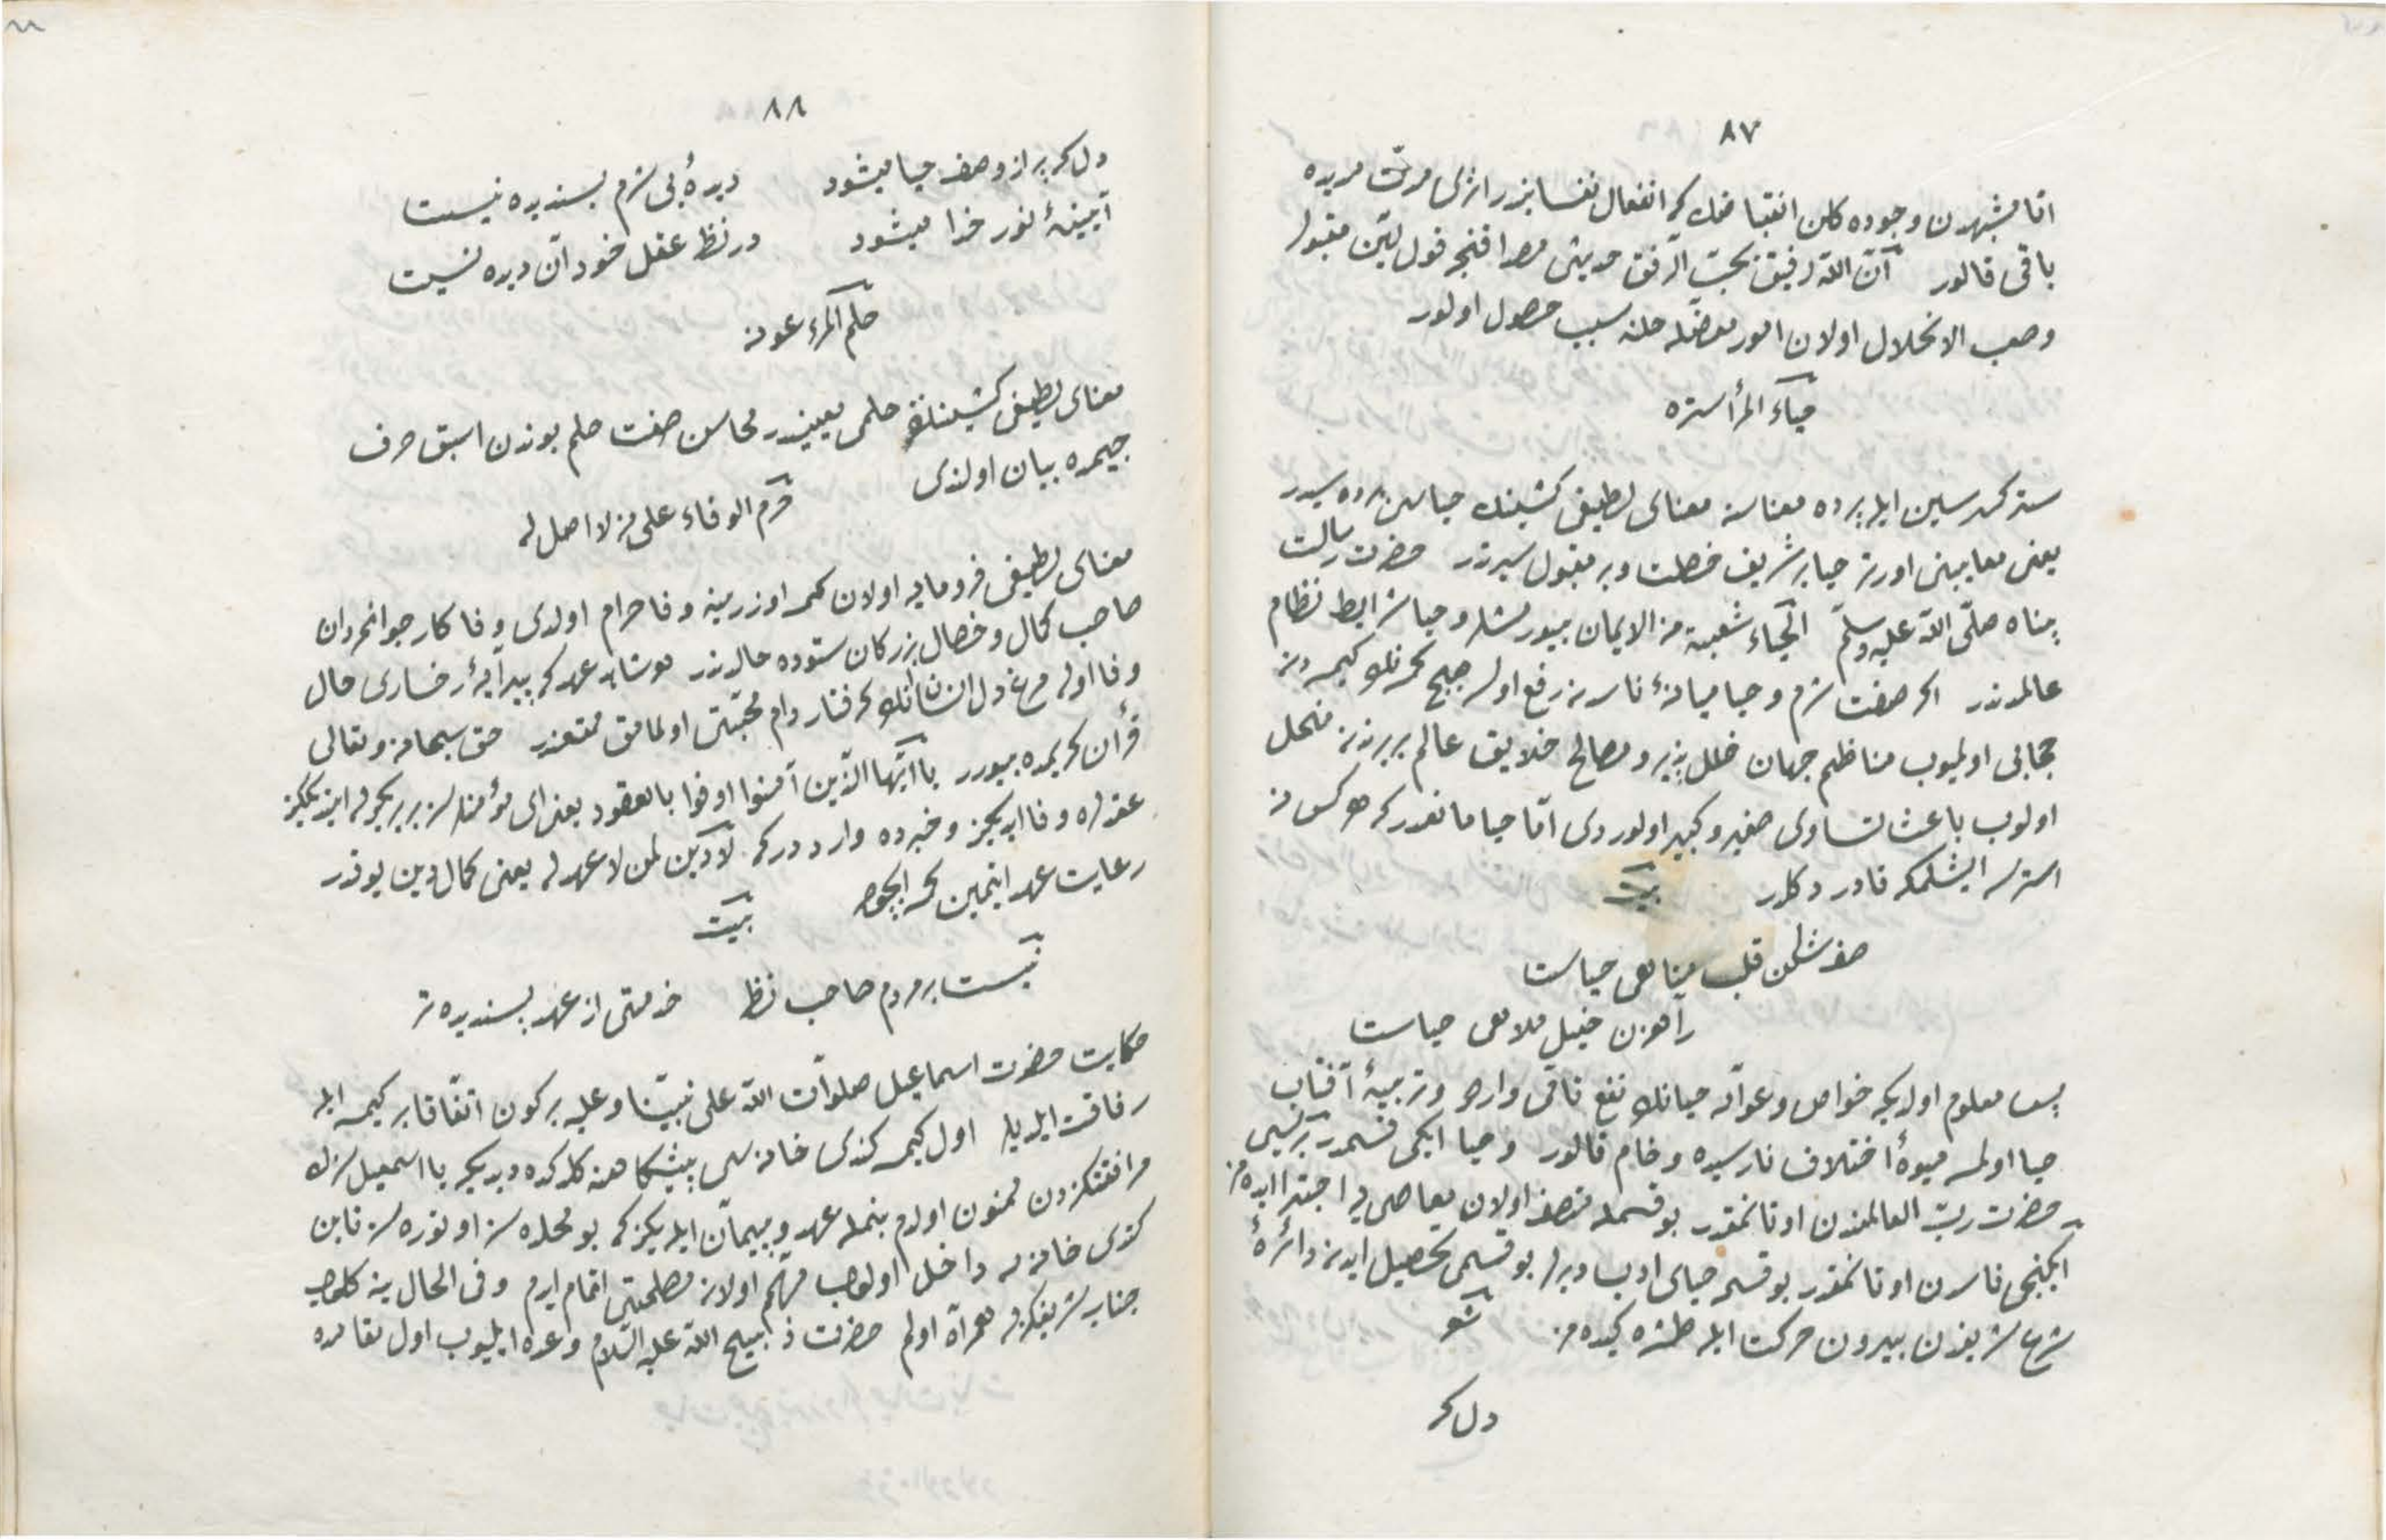 ٨٧
باقی قالور انّ اللّه رفیق یحبّ الرّفق حدیثی
وصعب الانحلال اولان امور معضله حلنه سبب حصول اولور
حیاء المرأ ستره
ستر که سین ایله پرده معناسنه معنای لطیفی کشینك حیاسی پرده سیدر
یعنی معایبنی اورتر حیا بر شریف خصلت وبر مقبول سیرتدر حضرت رسالت
پناه صلّی اللّه علیه وسلّم الحیاء شعبة من الایمان بیورمشلر وحیا شرایط نظام
عالمدندر اکر صفت شرم وحیا میانهٔ ناسدن رفع اولسه هیچ کمسنه نك کیمسه دن
حجابی اولمیوب مناظم جهان خلل پذیر ومصالح خلایق عالم بربرندن منحل
اولوب باعث تساوی صغیر وکبیر اولوردی امّا حیا مانعدر که هر کس نه
استرسه ایشلمکه قادر دکلدر بیت
صف شکن قلب مناهی حیاست
راهزن خیل ملاهی حیاست
پس معلوم اولدیکه خواص وعوامّه حیانك نفع تامّی واردر وتربیهٔ آفتاب
حیا اولمسه میوهٔ اختلاف نارسیده وخام قالور وحیا ایکی قسمدر بریسی
حضرت ربّ العالمیندن اوتانمقدر بو قسمله متصف اولان معاصی یه اجترا ایده مز
ایکنجی ناسدن اوتانمقدر بو قسمه حیای ادب دیرلر بو قسمی تحصیل ایدن دائرهٔ
شرع شریفدن بیرون حرکت ایله طشره کیده مز شعر
دل که
٨٨
دل که پر از وصف حیا میشود دیدهٔ بی شرم پسندیده نیست
آیینهٔ نور خدا میشود در نظر عقل خود آن دیده نیست
حلم المرء عونه
معنای لطیفی کشینك حلمی معینیدر محاسن صفت حلم بوندن اسبق حرف
جیمده بیان اولندی حرّم الوفاء علی من لا اصل له
معنای لطیفی فرومایه اولان کمسه اوزرینه وفا حرام اولدی وفا کار جوانمردان
صاحب کمال وخصال بزرکان ستوده حالدندر هر شاهد عهد که پیرایهٔ رخساری خال
وفا اوله مرغ دل انسان انك گرفتار دام محبّتی اولمامق ممتنعدر حق سبحانه وتعالی
قرآن کریمده بیورر یا ایّها الّذین آمنوا اوفوا بالعقود یعنی ای مؤمنلر بربریکزله ایتدیککز
عقدلره وفا ایدیکز وخبرده وارد در که لا دین لمن لا عهد له یعنی کمال دین یوقدر
رعایت عهد ایتمین کمسه ایچون بیت
نیست بر مردم صاحب نظر خدمتی از عهد پسندیده تر
حکایت حضرت اسماعیل صلوات اللّه علی نبیّنا وعلیه بر کون اتّفاقا بر کیمسه ایله
رفاقت ایلدیلر اول کیمسه کندی خانه سی پیشکاهنه کلدکده دیدیکه یا اسمعیل سزك
مرافقتکزدن ممنون اولدم بنمله عهد وپیمان ایدیکز که بو محلده سز اوتوره سز تا بن
کندی خانه مه داخل اولوب مهمّ اولان مصلحتی اتمام ایدم وفی الحال ینه کلوب
جناب شریفکزله همراه اولم حضرت ذبیح اللّه علیه السّلام وعده ایلیوب اول مقامده